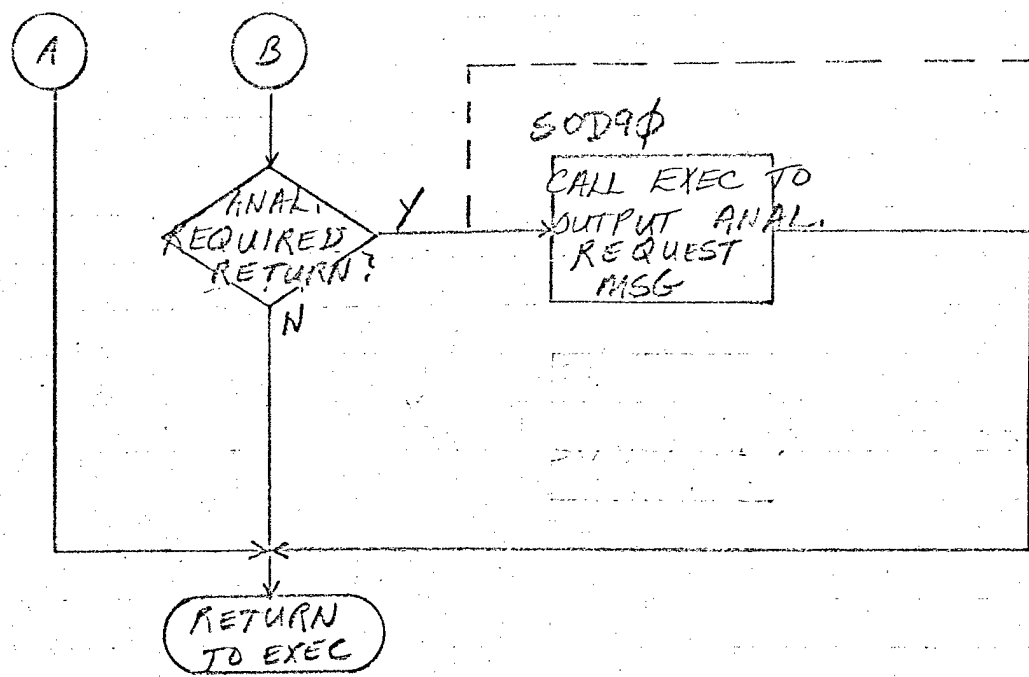 A
B
SOD9φ
ANAL.
REQUIRED
RETURN?
Y
N
CALL EXEC TO
OUTPUT ANAL.
REQUEST
MSG
RETURN
TO EXEC